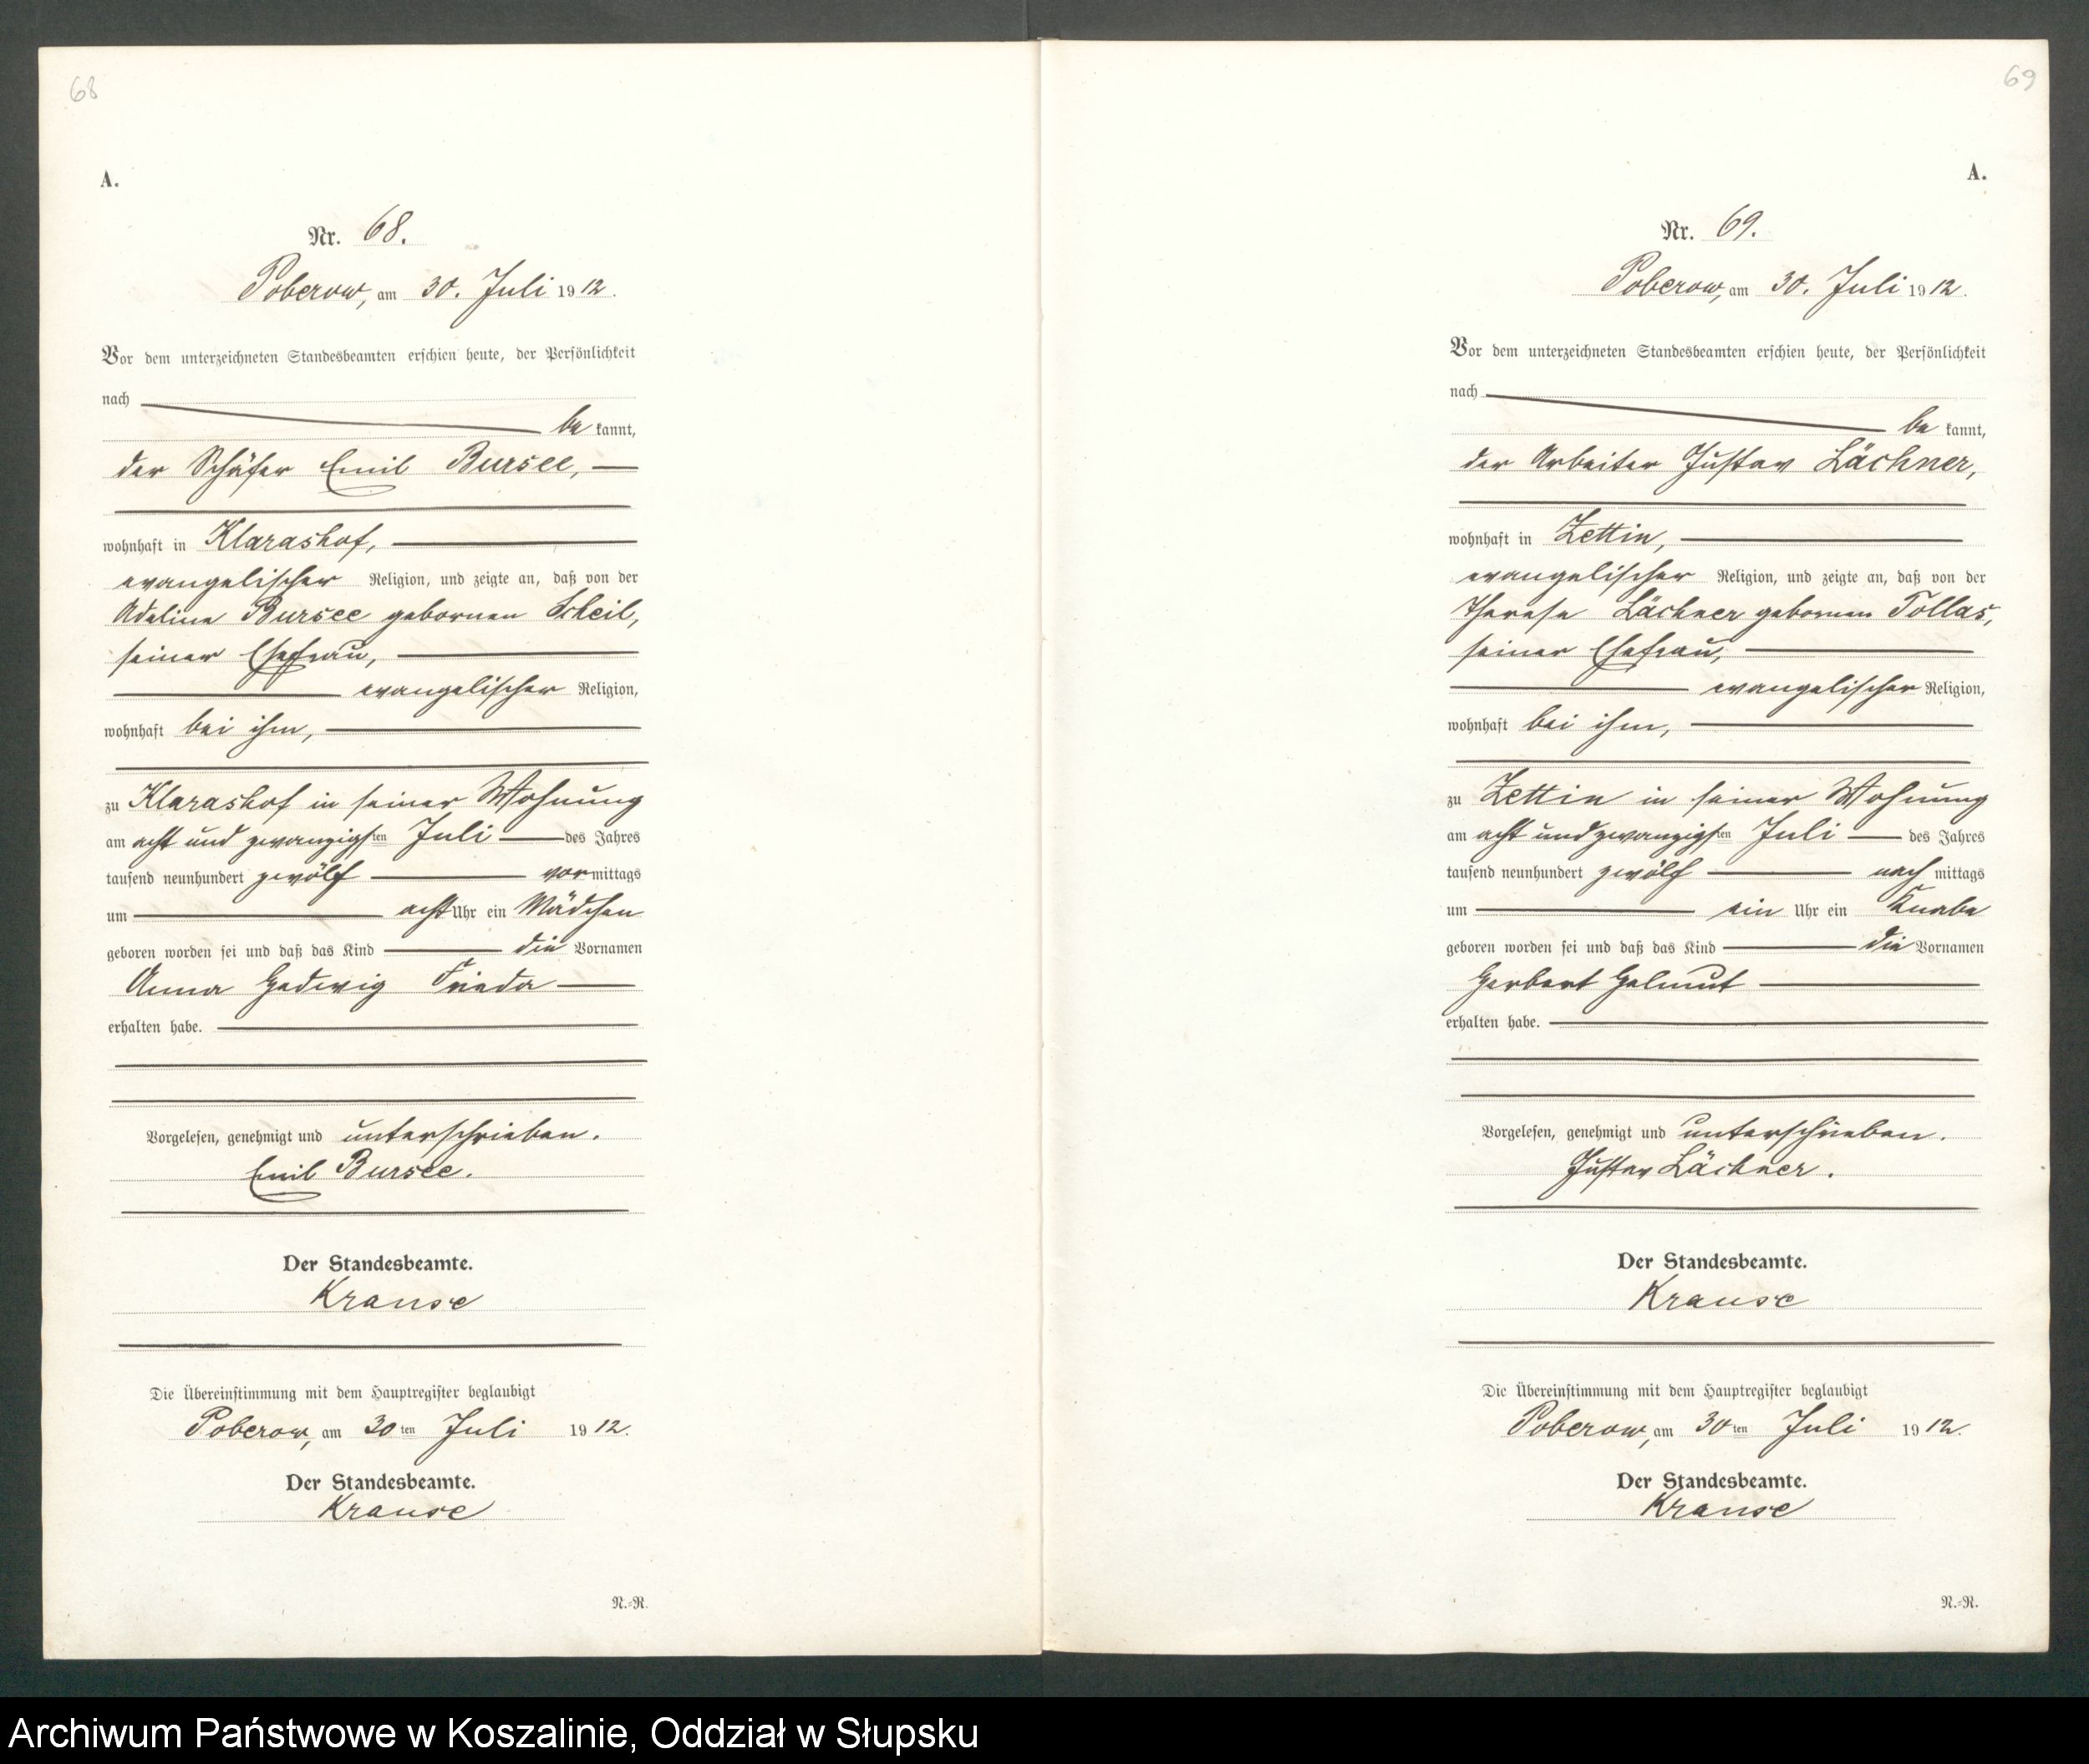 68
A.
Nr. 68.
Poberow, am 30. Juli 1912.
Vor dem unterzeichneten Standesbeamten erschien heute, der Persönlichkeit
nach
be kannt,
der Schäfer Emil Bursee,
wohnhaft in Klarashof,
evangelischer Religion, und zeigte an, daß von der
Adeline Bursee gebornen Scheil,
seiner Ehefrau,
evangelischer Religion,
wohnhaft bei ihm,
zu Klarashof in seiner Wohnung
am acht und zwanzigsten Juli des Jahres
tausend neunhundert zwölf vormittags
um acht Uhr ein Mädchen
geboren worden sei und daß das Kind die Vornamen
Anna Hedwig Frieda
erhalten habe.
Vorgelesen, genehmigt und unterschrieben.
Emil Bursee.
Der Standesbeamte.
Krause
Die Übereinstimmung mit dem Hauptregister beglaubigt
Poberow, am 30ten Juli 1912.
Der Standesbeamte.
Krause
N.=R.
69
A.
Nr. 69.
Poberow, am 30. Juli 1912.
Vor dem unterzeichneten Standesbeamten erschien heute, der Persönlichkeit
nach
be kannt,
der Arbeiter Gustav Lächner,
wohnhaft in Zettin,
evangelischer Religion, und zeigte an, daß von der
Therese Lächner gebornen Tollas,
seiner Ehefrau,
evangelischer Religion,
wohnhaft bei ihm,
zu Zettin in seiner Wohnung
am acht und zwanzigsten Juli des Jahres
tausend neunhundert zwölf nach mittags
um ein Uhr ein Knabe
geboren worden sei und daß das Kind die Vornamen
Herbert Helmut
erhalten habe.
Vorgelesen, genehmigt und unterschrieben.
Gustav Lächner.
Der Standesbeamte.
Krause
Die Übereinstimmung mit dem Hauptregister beglaubigt
Poberow, am 30ten Juli 1912.
Der Standesbeamte.
Krause
N.=R.
Archiwum Państwowe w Koszalinie, Oddział w Słupsku